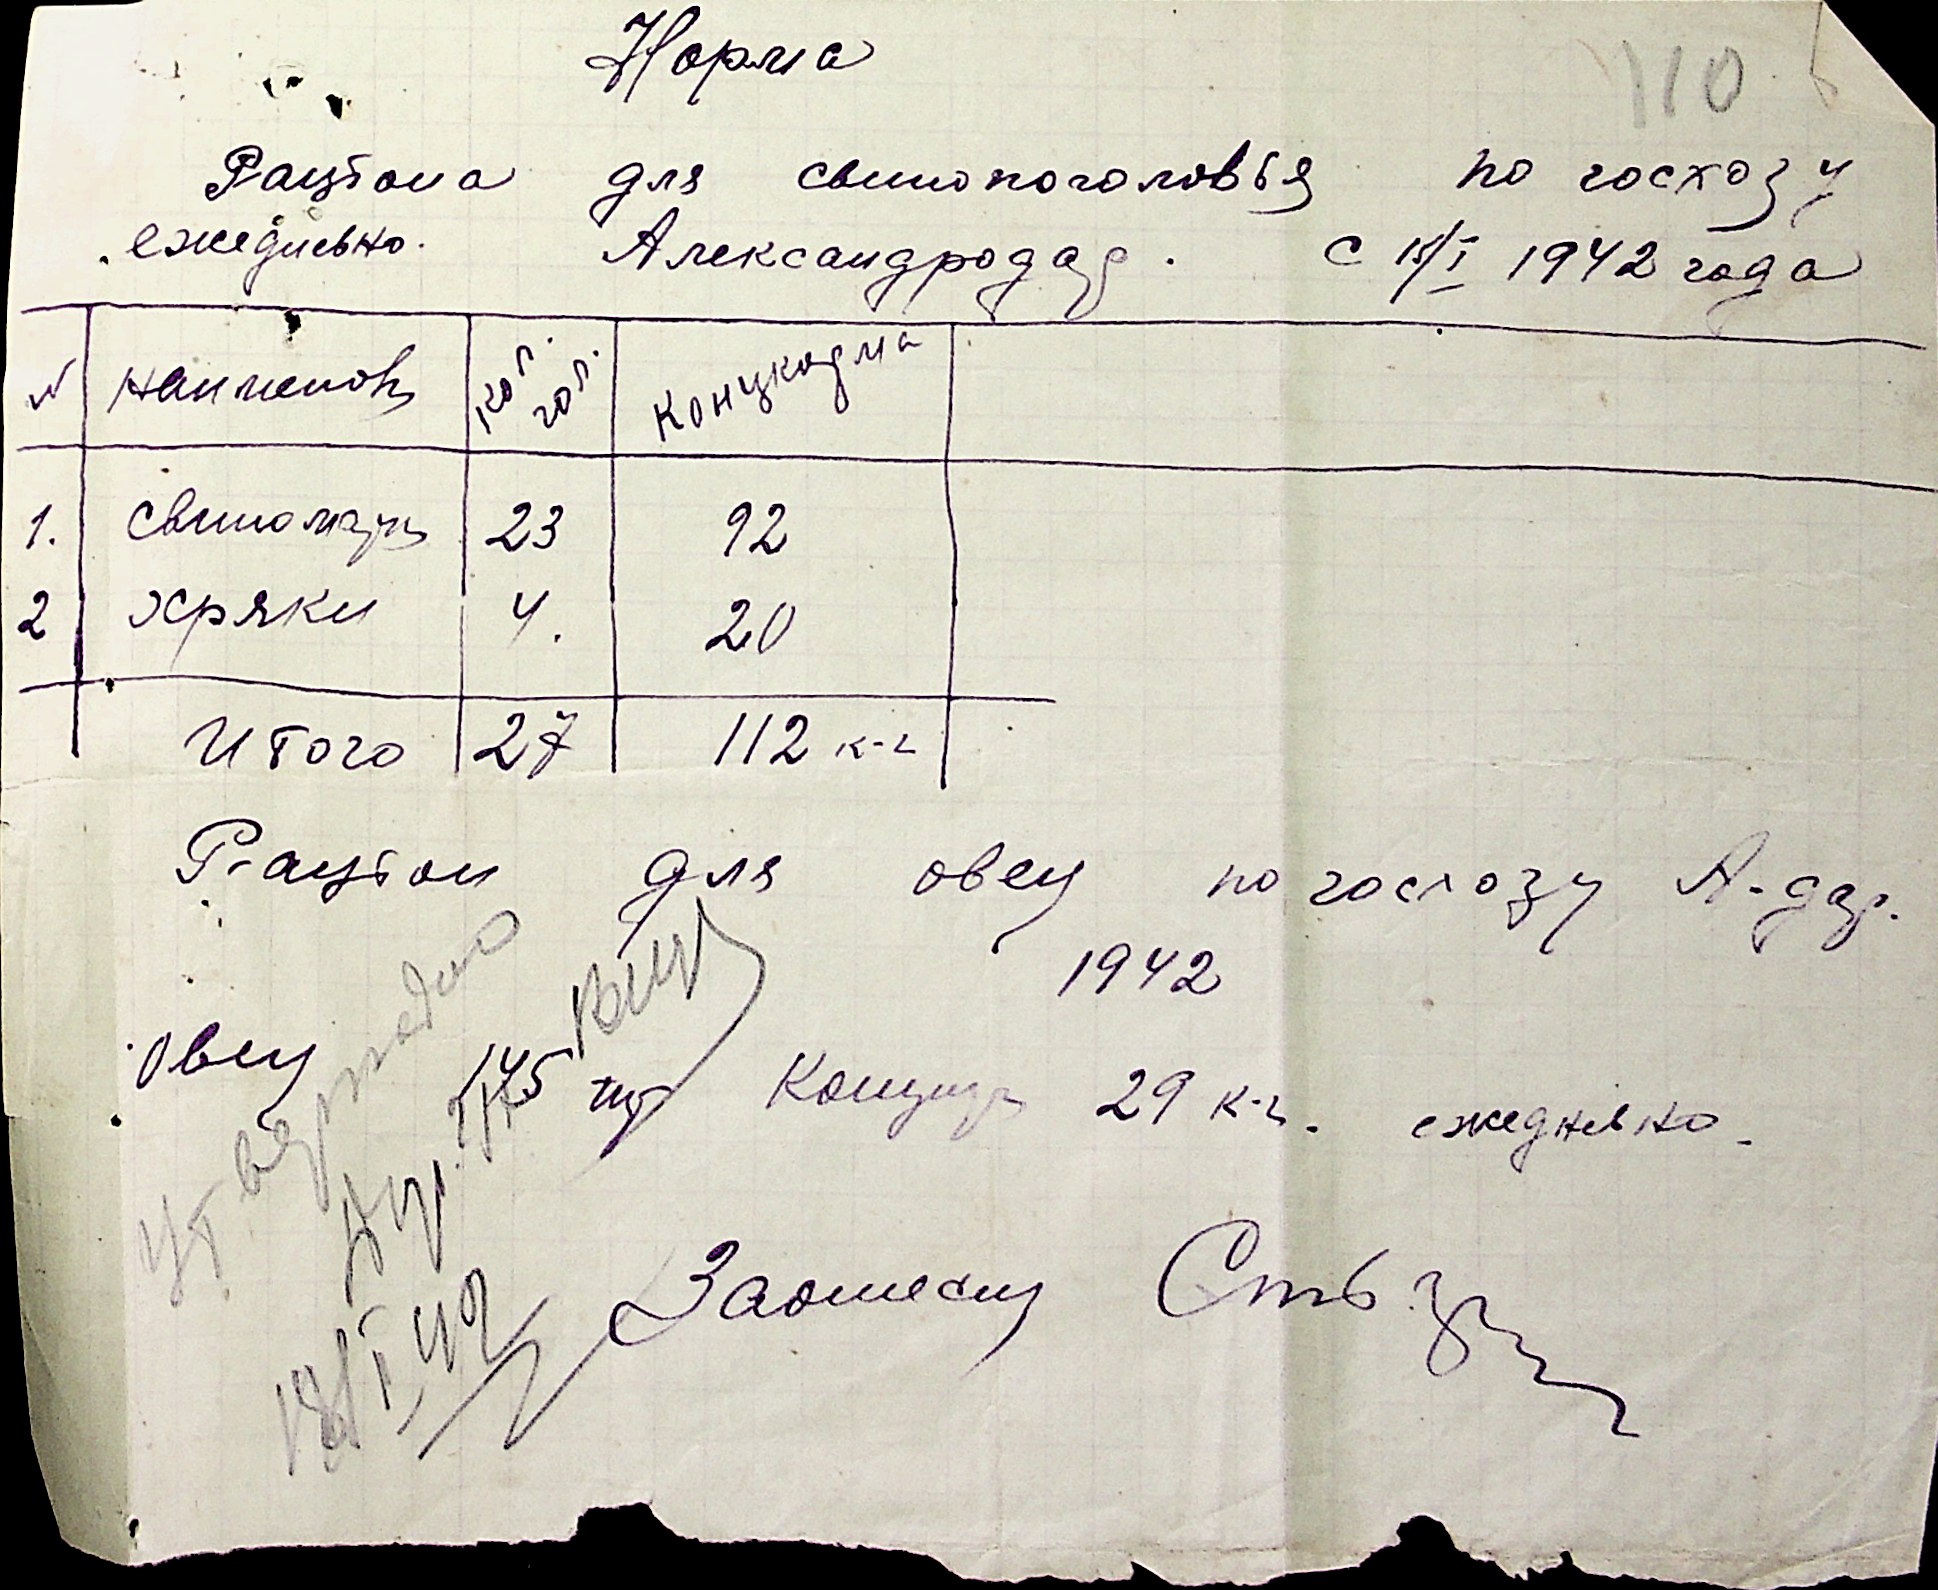 110
Норма
Рациона для свинопоголовья по госхозу
ежедневно. Александродар. с 15/I 1942 года
№ наименов. кол. гол. Концкорма
1. свиноматки 23 92
2 хряки 4. 20
Итого 27 112 к-г
Рацион для овец по госхозу А-дар.
1942
Овец 145 шт Концен 29 к-г. ежедневно.
Утверждаю
18/I 42
Зоотехник